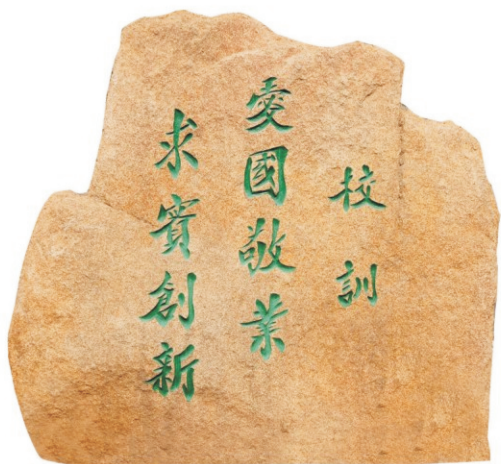 校訓
愛國敬業
求實創新